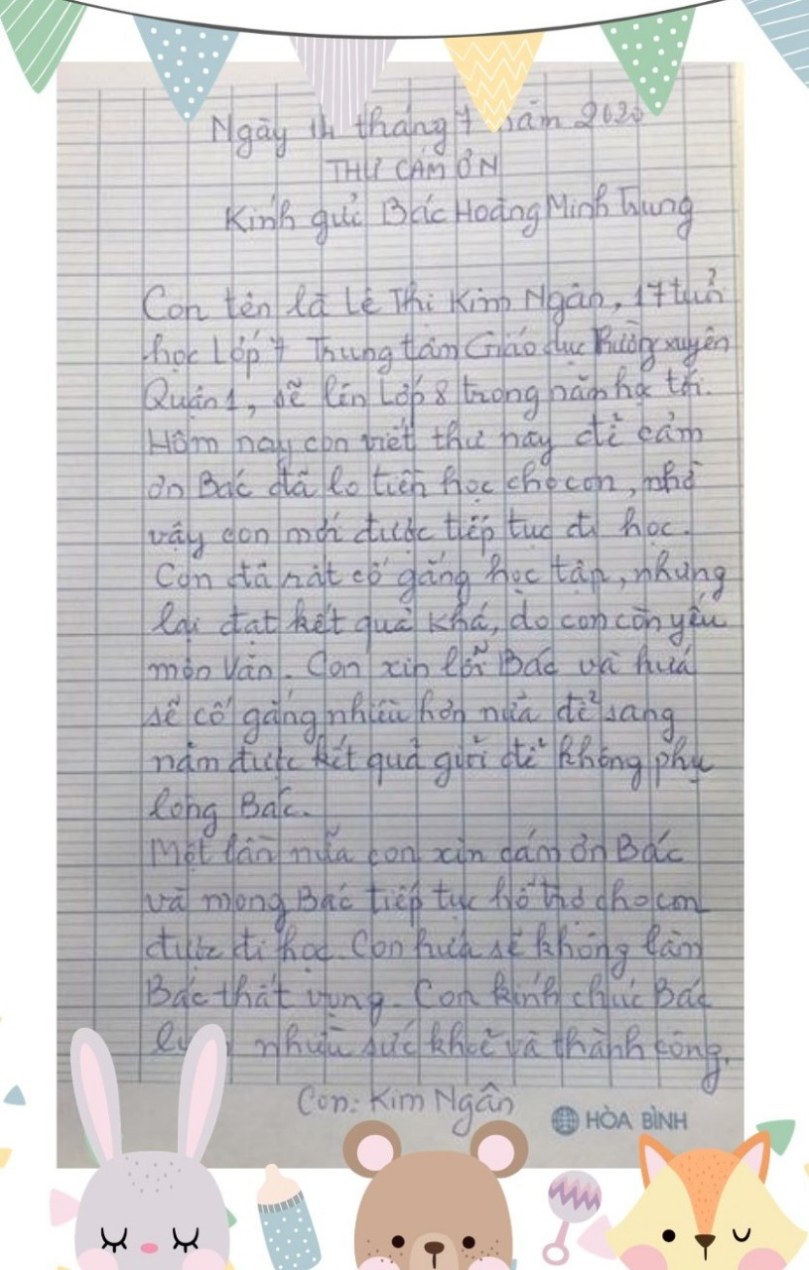 Ngày 14 tháng 7 năm 2020
THƯ CẢM ƠN
Kính gửi Bác Hoàng Minh Trung
Con tên là Lê Thị Kim Ngân, 17 tuổi
học Lớp 7 Trung tâm Giáo dục Thường xuyên
Quận 1, sẽ lên Lớp 8 trong năm học tới.
Hôm nay con viết thư này để cảm
ơn Bác đã lo tiền học cho con, nhờ
vậy con mới được tiếp tục đi học.
Con đã rất cố gắng học tập, nhưng
lại đạt kết quả khá, do con còn yếu
môn Văn. Con xin lỗi Bác và hứa
sẽ cố gắng nhiều hơn nữa để sang
năm được kết quả giỏi để không phụ
lòng Bác.
Một lần nữa con xin cám ơn Bác
và mong Bác tiếp tục hỗ trợ cho con
được đi học. Con hứa sẽ không làm
Bác thất vọng. Con kính chúc Bác
nhiều sức khoẻ và thành công.
Con: Kim Ngân
HÒA BÌNH